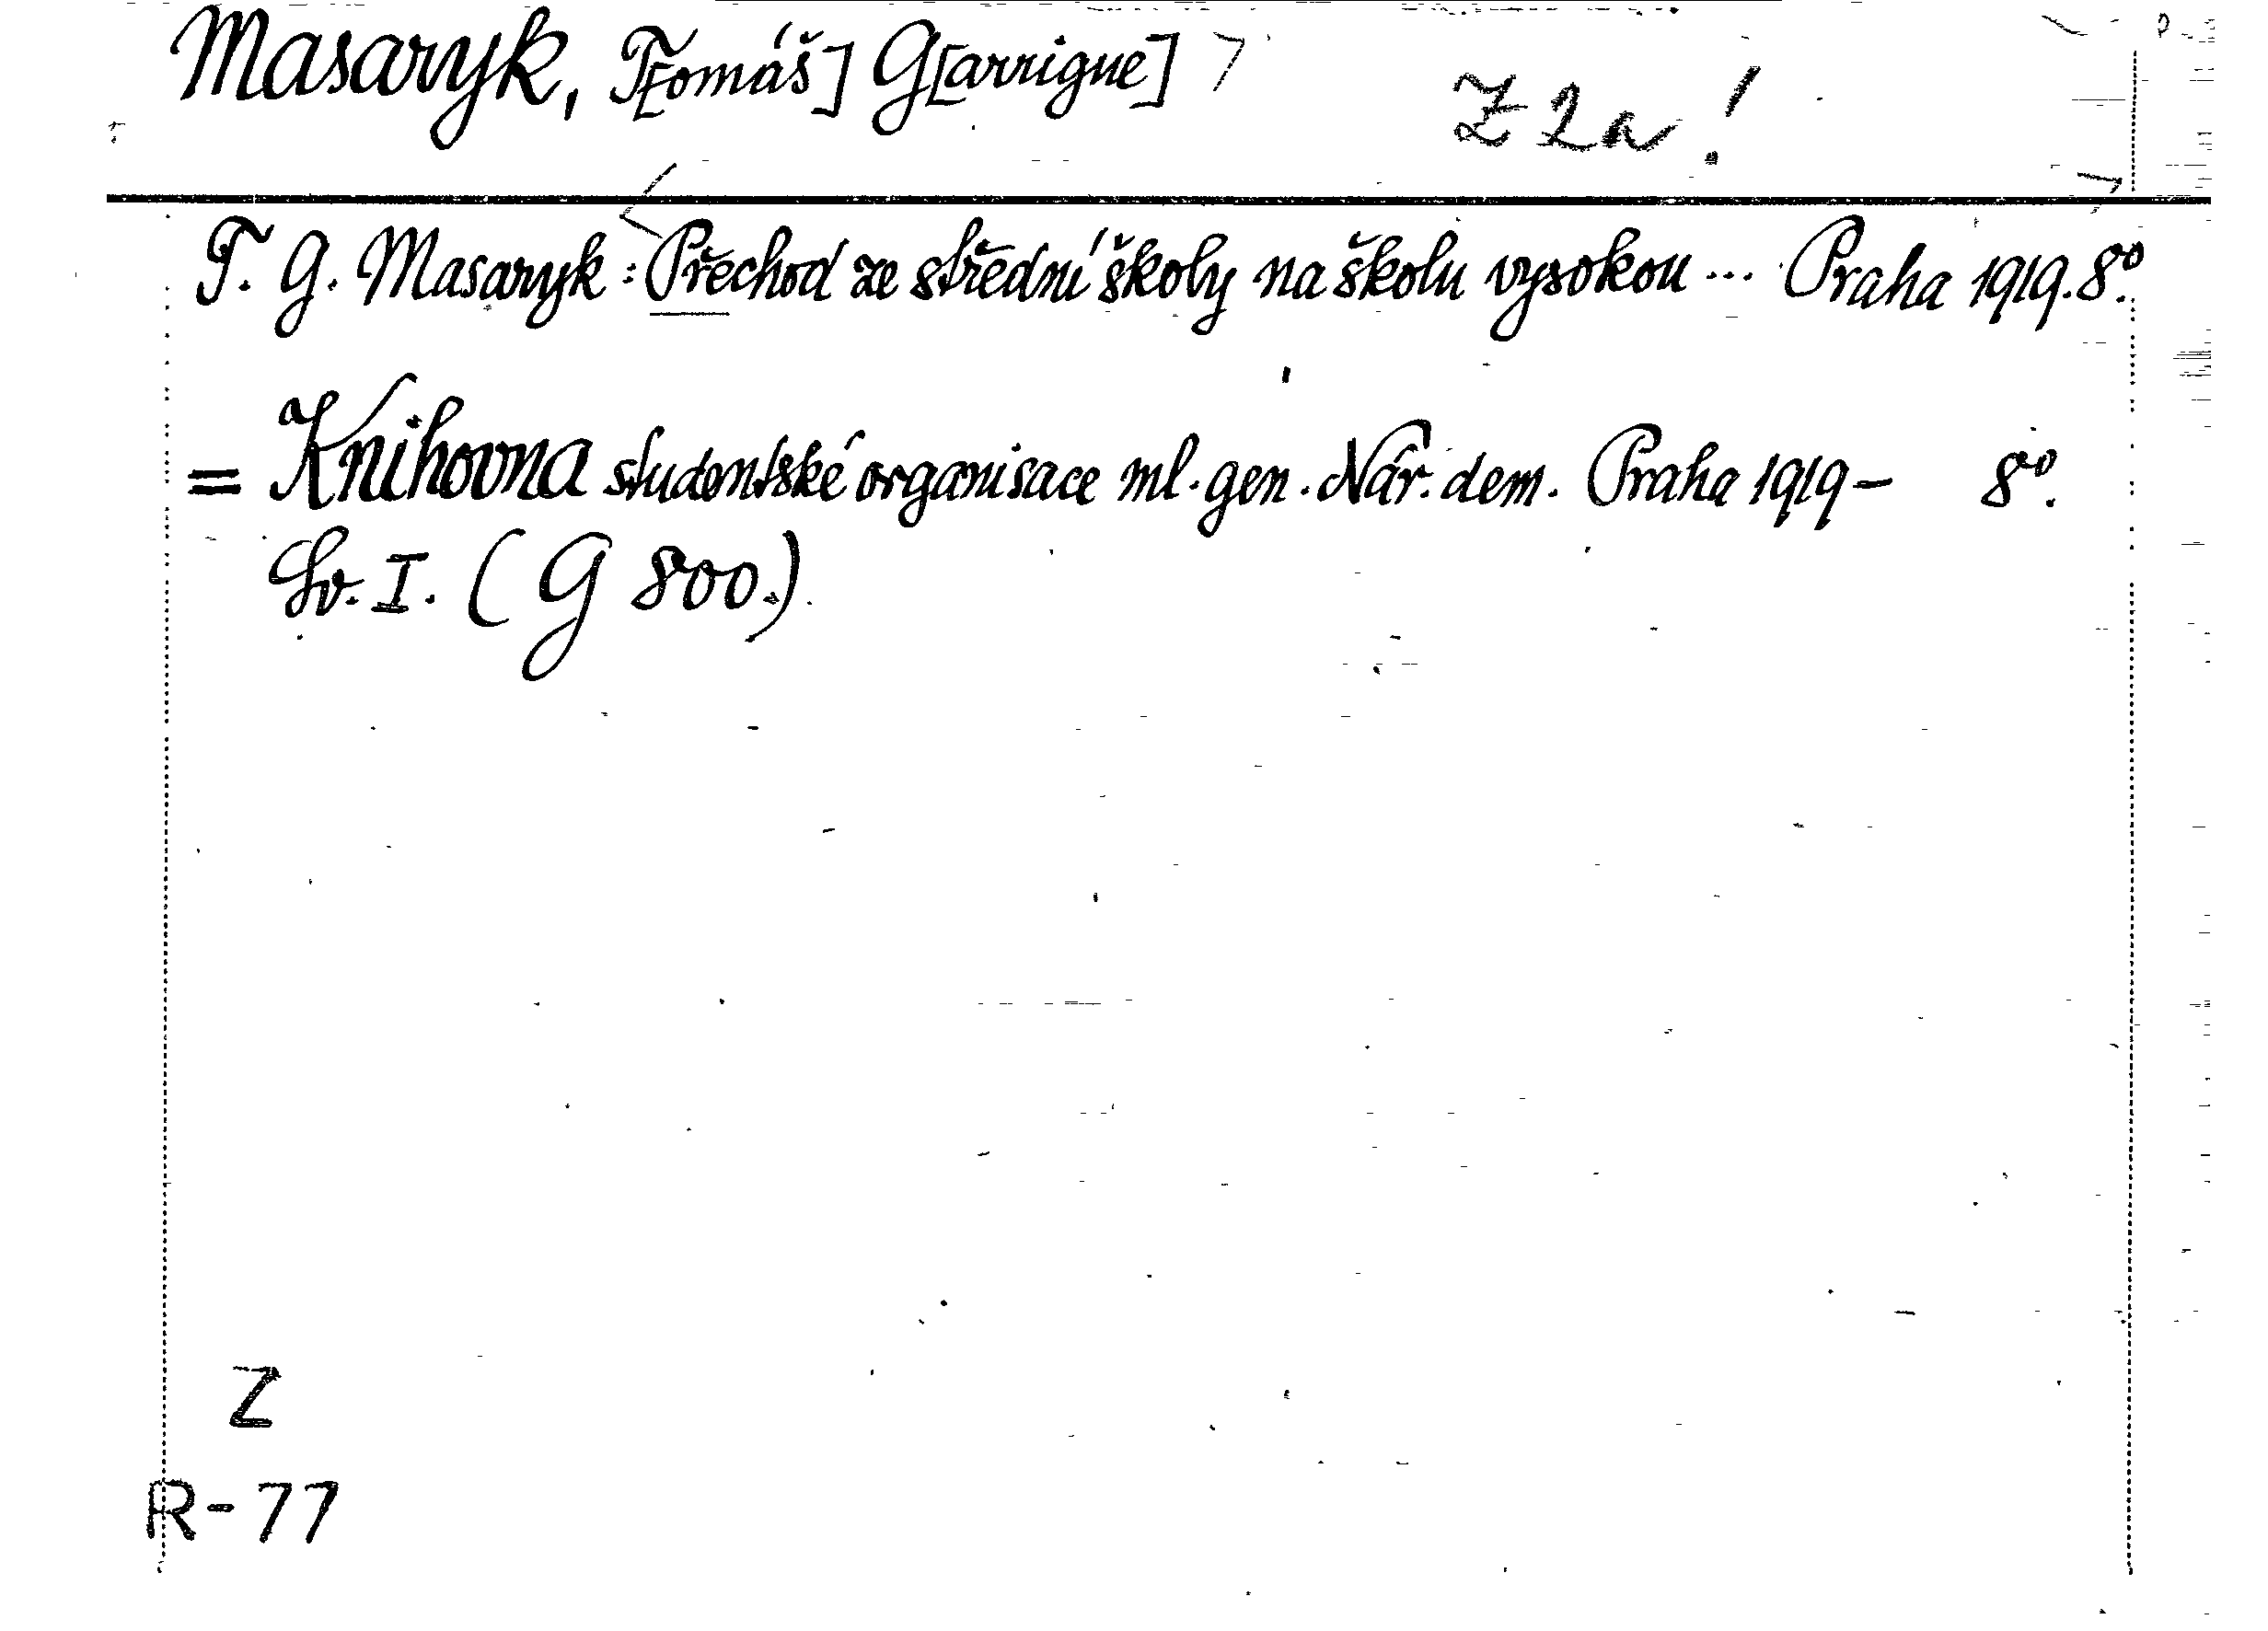 Masaryk, T[omáš] G[arrigue]
Z 2a!
T. G. Masaryk: Přechod ze střední školy na školu vysokou... Praha 1919. 8°.
= Knihovna studentské organisace ml. gen. Nár. dem. Praha 1919- 8°.
Sv. I. (G 800.)
Z
R-77